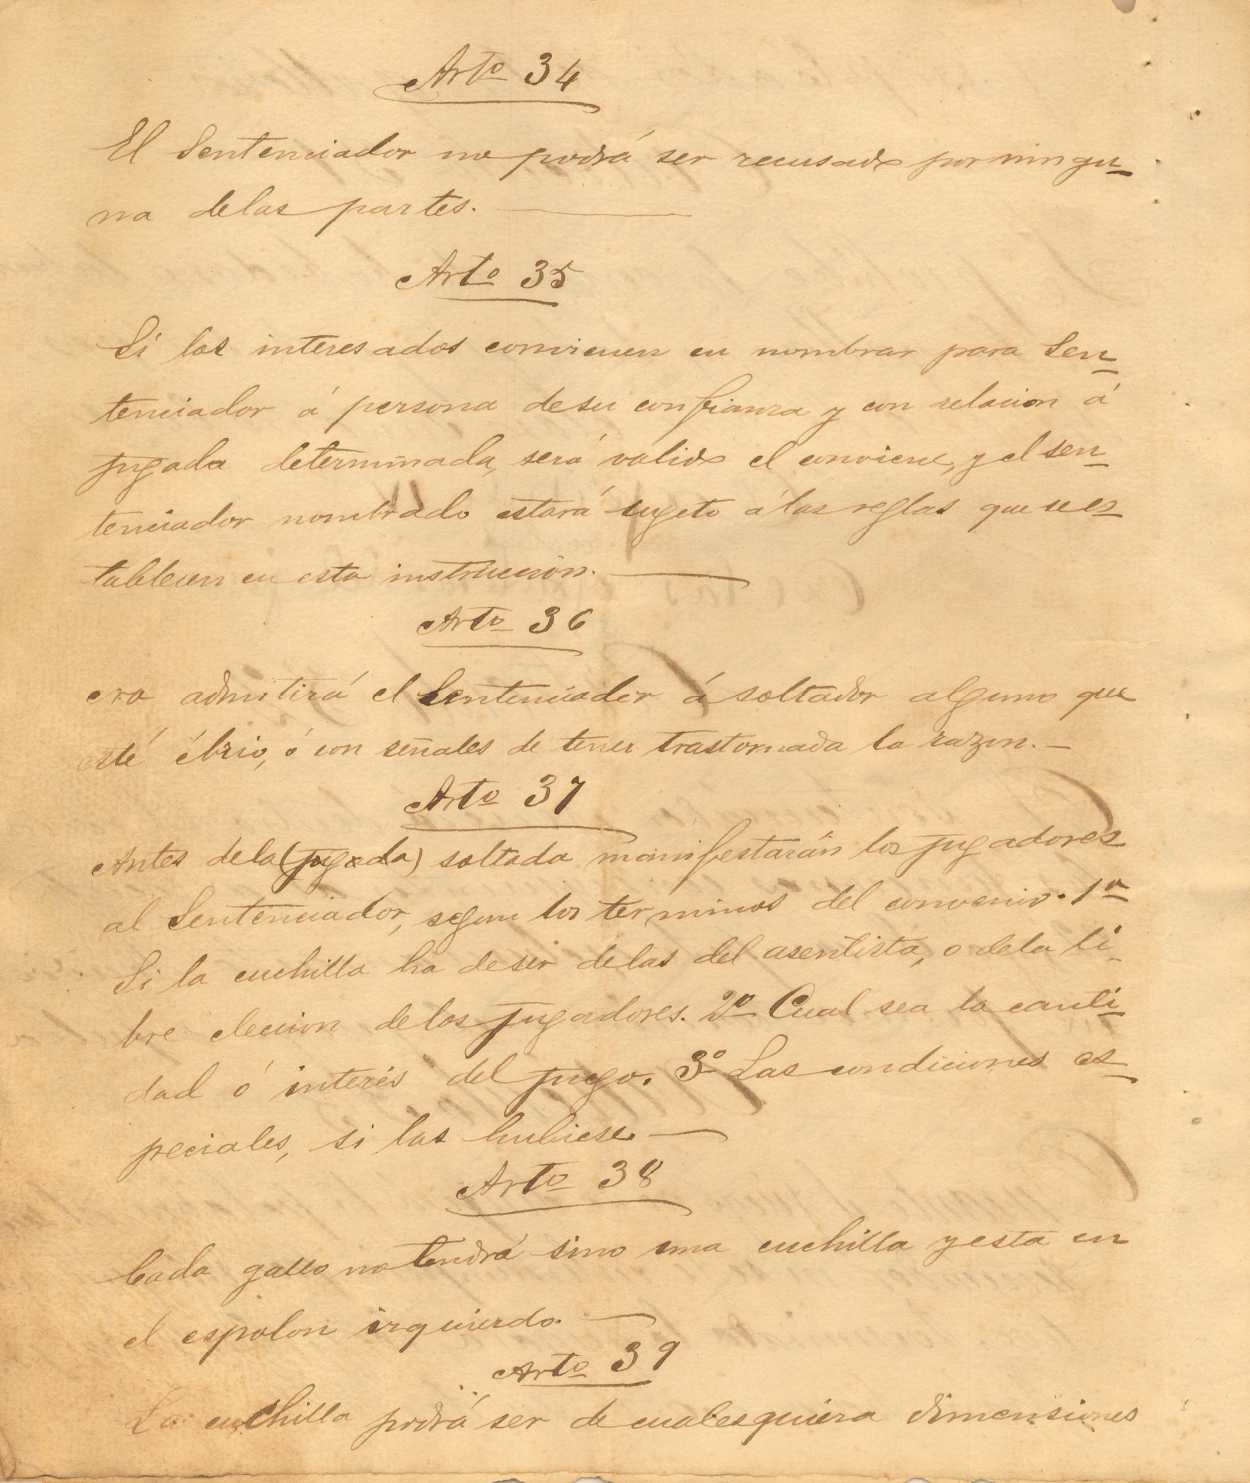 Arto 34
El Sentenciador no podrá ser recusado por ningu-
na delas partes.
Arto 35
Si los interesados convienen en nombrar para Sen-
tenciador á persona desu confianza y con relacion á
jugada determinada, será valido el conviene, y el sen-
tenciador nombrado estará sugeto álas reglas que se es-
tablecen en esta instruccion.
Arto 36
No admitirá el Sentenciador á soltador alguno que
esté ébrio, ó con señales de tener trastornada la razon.
Arto 37
Antes dela (jugada) soltada manifestarán los jugadores
al Sentenciador, segun los terminos del convenio. 1o
Si la cuchilla ha deser delas del asentista, o dela li-
bre eleccion delos jugadores. 2o Cual sea la canti-
dad ó interés del juego. 3o Las condiciones es-
peciales, si las hubiese.
Arto 38
Cada gallo no tendrá sino una cuchilla y esta en
el espolon izquierdo.
Arto 39
La cuchilla podrá ser de cualesquiera dimensiones